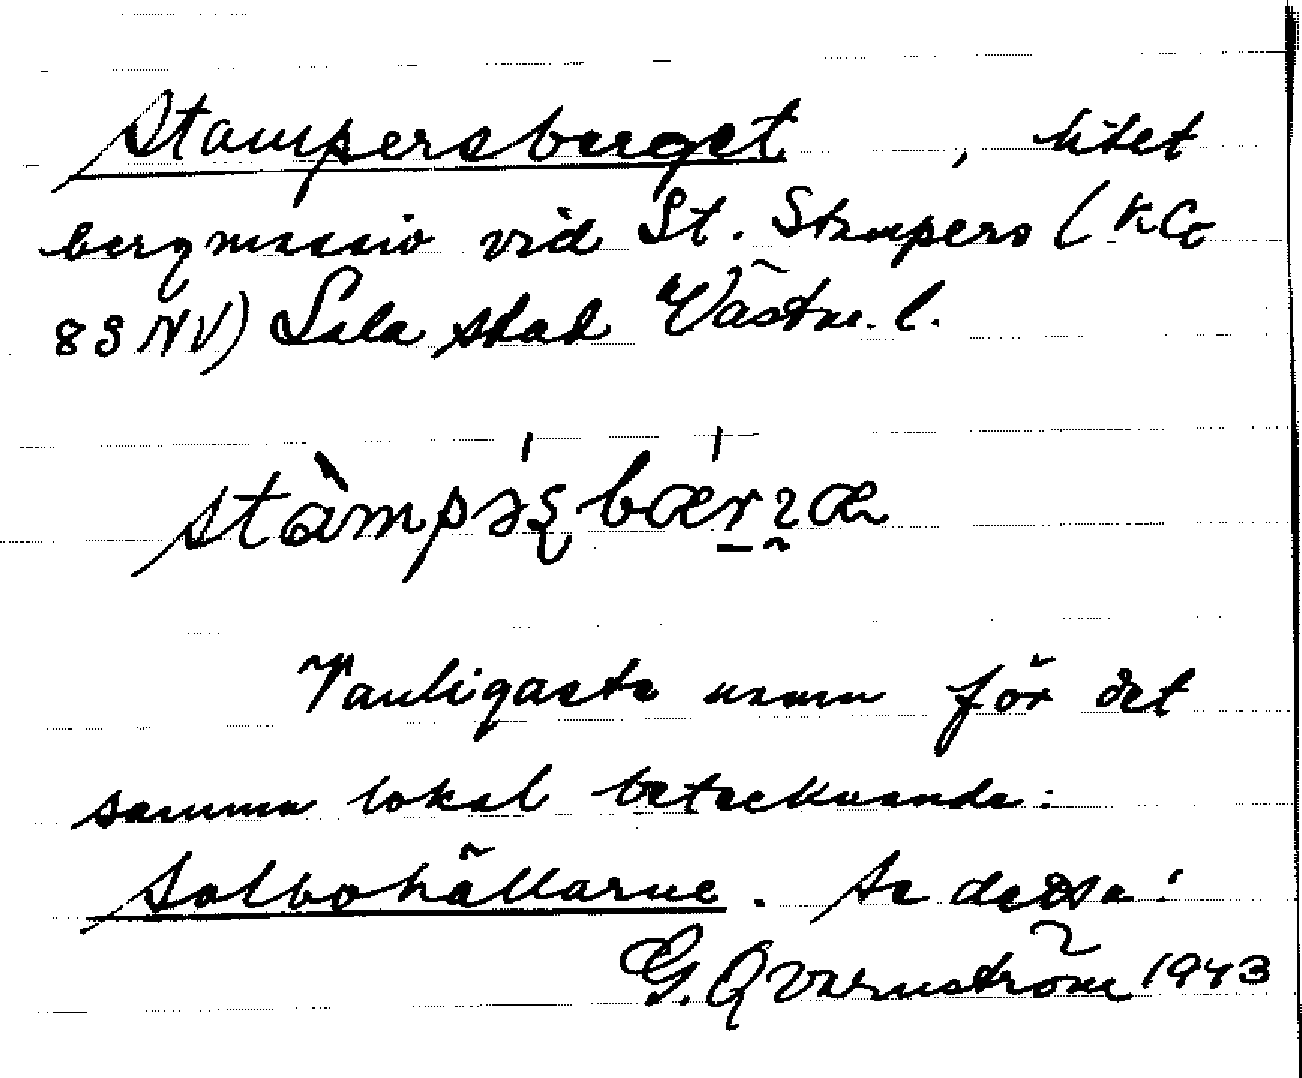 Stampersberget, litet
bergmassiv vid St. Stampers (KCo
83 NV) Sala stad Västm. l.
Vanligaste namn för det
samma lokal betecknande:
Salbohällarne. Se dessa!
G. Qvarnström 1943